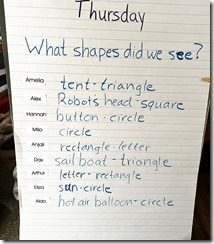 Thursday
What shapes did we see?
Amelia tent - triangle
Alex Robot's head - square
Hannah button - circle
Milo circle
Anjali rectangle - letter
Dax sail boat - triangle
Arthur letter - rectangle
Eliza sun - circle
Aldo hot air balloon - circle